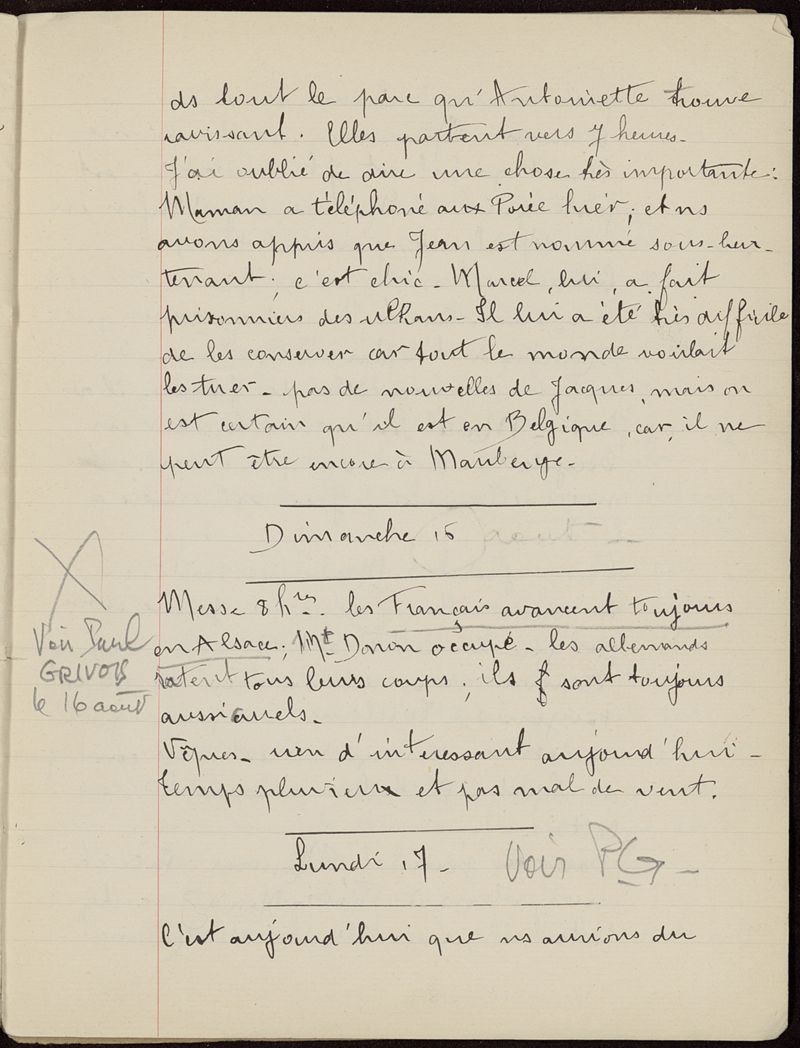 ds tout le parc qu'Antoinette trouve
ravissant. Elles partent vers 7 heures.
J'ai oublié de dire une chose très importante:
Maman a téléphoné aux Porée hier; et ns
avons appris que Jean est nommé sous-lieu-
tenant; c'est chic. Marcel, lui, a fait
prisonniers des uhlans. Il lui a été très difficile
de les conserver car tout le monde voulait
les tuer. pas de nouvelles de Jacques, mais on
est certain qu'il est en Belgique, car, il ne
peut être encore à Maubeuge.
Dimanche 16 août
Messe 8 hres. les Français avancent toujours
en Alsace; Mt Donon occupé. les allemands
ratent tous leurs coups; ils sont toujours
aussi cruels.
X
Voir Paul
GRIVOIS
le 16 août
Vêpres. rien d'intéressant aujourd'hui.
temps pluvieux et pas mal de vent.
Lundi 17. Voir PG
C'est aujourd'hui que ns aurions du